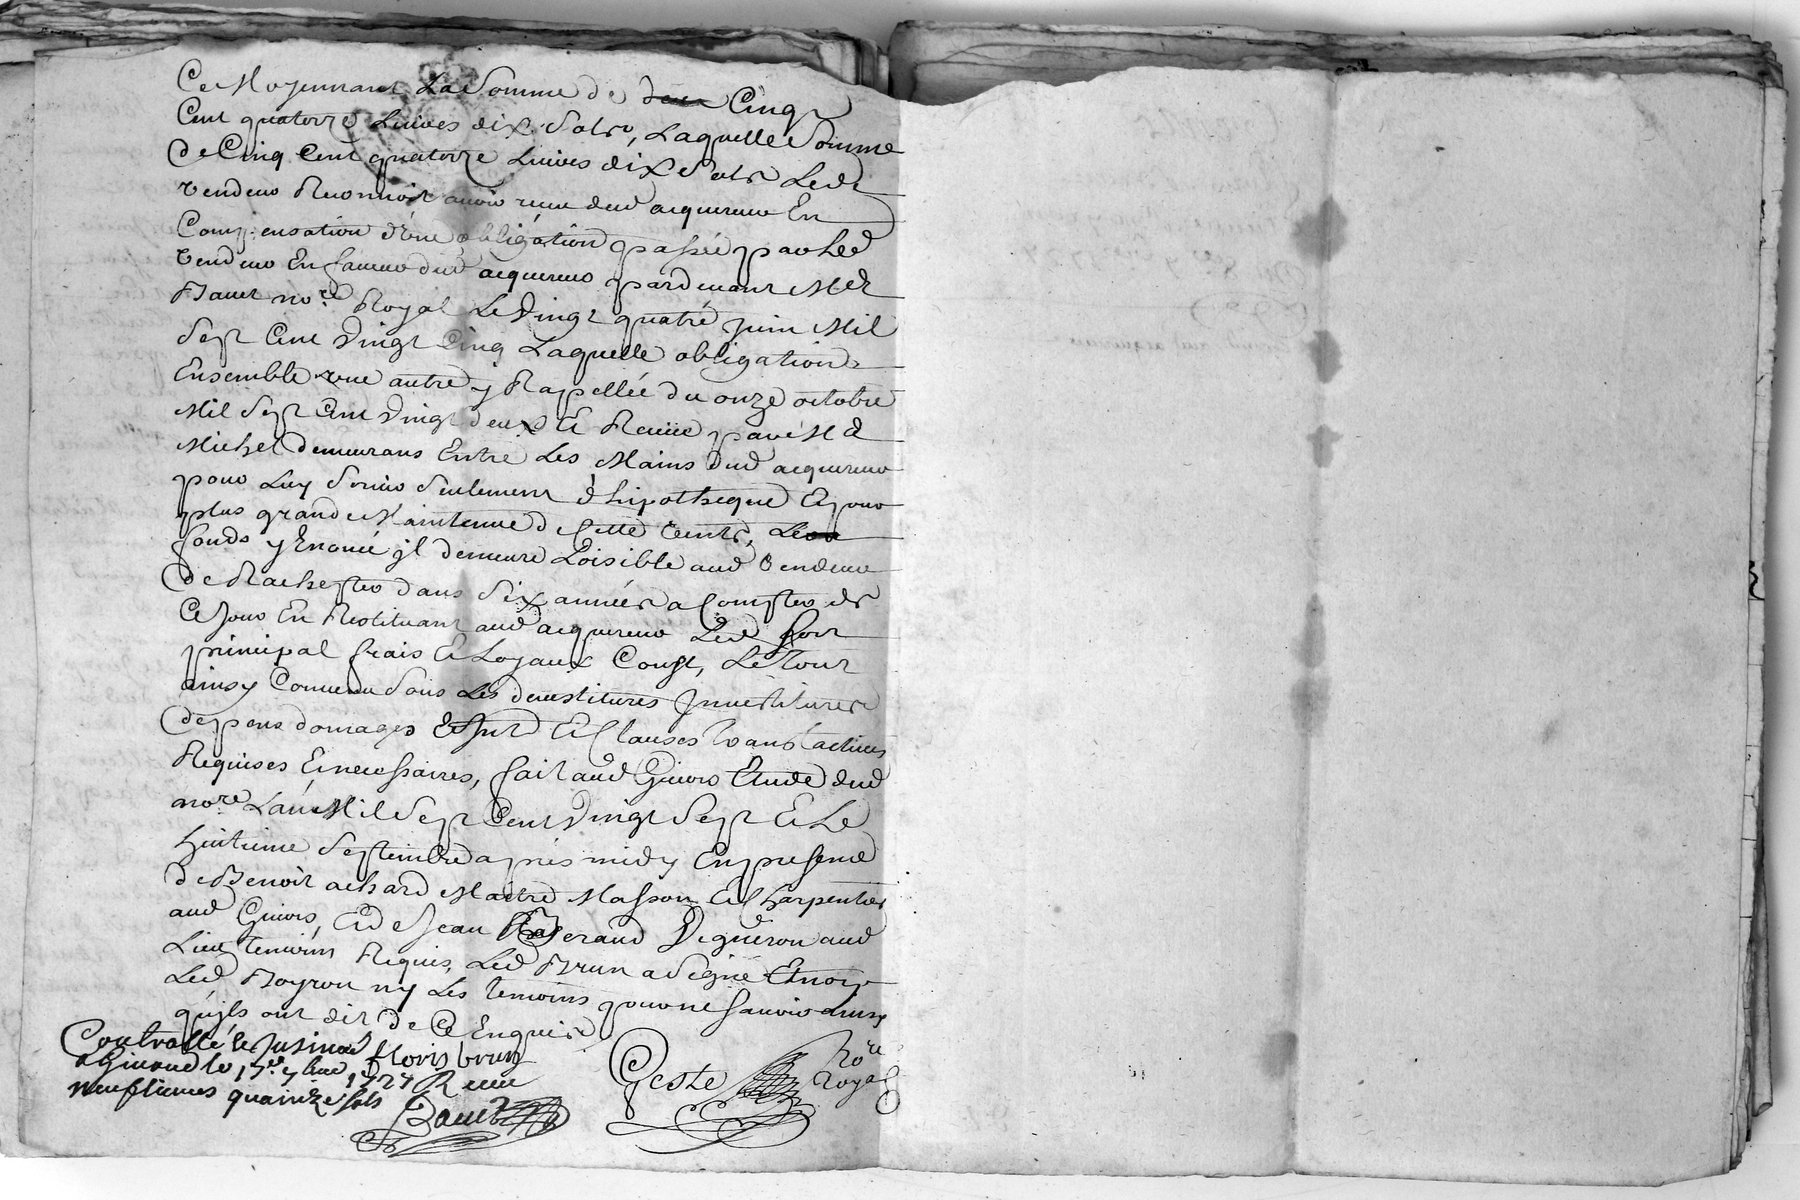 Ce Moyennant La Somme de deux Cinq
Cent quatorze Livres dix Solz, Laquelle Somme
de Cinq Cent quatorze Livres dix Solz Led
vendeur Reconnoit avoir receu dud acquereur En
Compensation d'une obligation passée par Led
vendeur En faveur dud acquereur pardevant Me
Bavet nore Royal Le Vingt quatre juin Mil
Sept Cent Vingt Cinq Laquelle obligation
Ensemble une autre y Rappellée du onze octobre
Mil Sept Cent Vingt deux et Receüe par Me
Michel demeurans Entre Les Mains dud acquereur
pour Luy Servir Seulement d'hipotheque Et pour
plus grande Maintenue de Cette vente,
fonds y Enoncé il demeure Loisible aud Vendeur
de Rachepter dans Six années a Compter de
Ce Jour En Restituant aud acquereur Led Sort
principal frais Et Loyaux Coust, Le Tout
ainsy Convenu Sous Les devestitures Jnvestitures
depens domages Et Clauses translatives
Requises Et necessaires, fait aud Givors Etude dud
nore L'an Mil Sept Cent Vingt Sept Et Le
huitieme Septembre apres midy En presence
de Benoit achard Maitre Masson Et Charpentier
aud Givors, Et de Jean Vigneron aud
Lieu temoins Requis, Led Brun a Signé Et non
Led Boyron ny Les temoins pour ne Scavoir ainsy
qu'ils ont dit de Ce Enquis
Controllé le
floris brun
a Givors le 17e 7bre 1727 Receu
neuf livres quainze sols
Bavet
Geste
nore
Royal